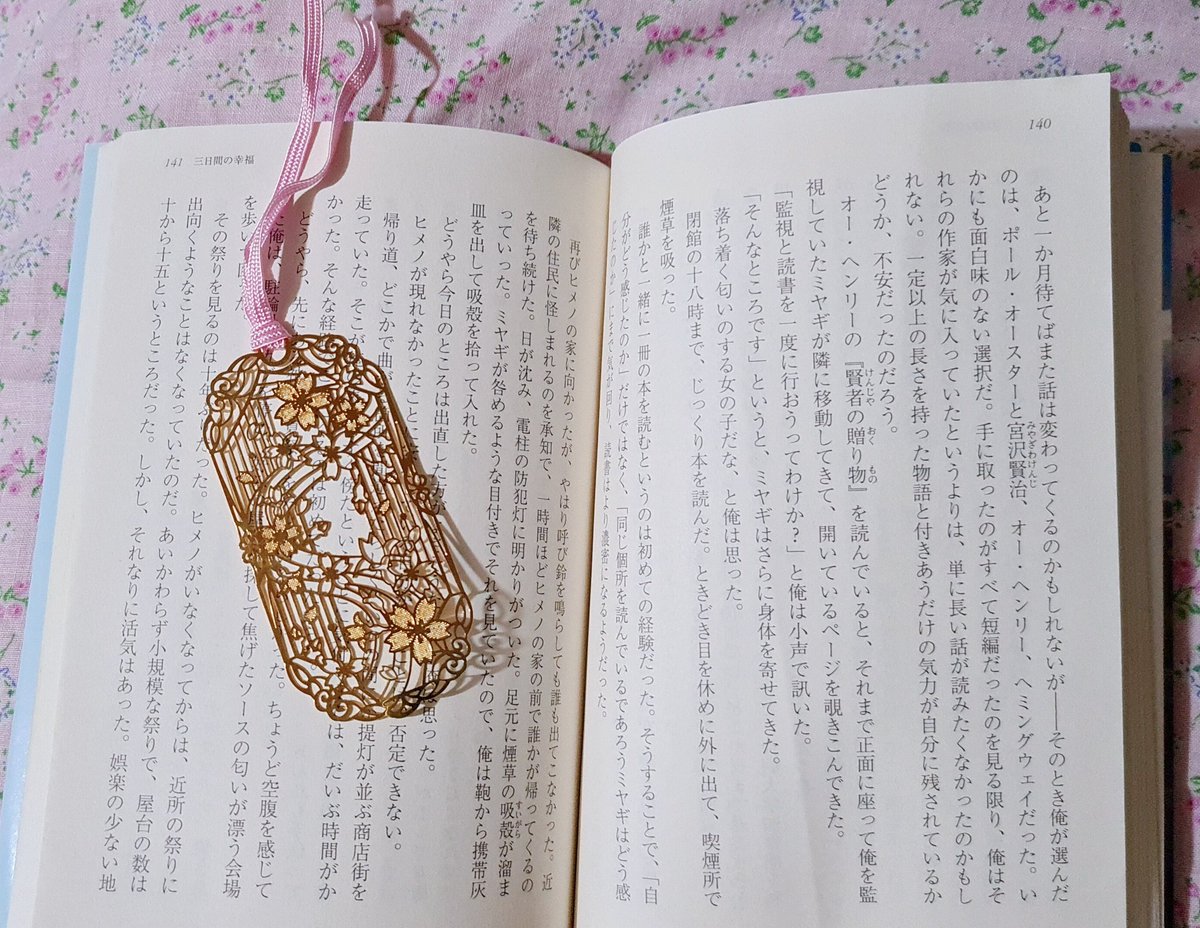 140
あと一か月待てばまた話は変わってくるのかもしれないが――そのとき俺が選んだ
のは、ポール・オースターと宮沢賢治、オー・ヘンリー、ヘミングウェイだった。い
かにも面白味のない選択だ。手に取ったのがすべて短編だったのを見る限り、俺はそ
れらの作家が気に入っていたというよりは、単に長い話が読みたくなかったのかもし
れない。一定以上の長さを持った物語と付きあうだけの気力が自分に残されているか
どうか、不安だったのだろう。
オー・ヘンリーの『賢者の贈り物』を読んでいると、それまで正面に座って俺を監
視していたミヤギが隣に移動してきて、開いているページを覗きこんできた。
「監視と読書を一度に行おうってわけか?」と俺は小声で訊いた。
「そんなところです」というと、ミヤギはさらに身体を寄せてきた。
落ち着く匂いのする女の子だな、と俺は思った。
閉館の十八時まで、じっくり本を読んだ。ときどき目を休めに外に出て、喫煙所で
煙草を吸った。
誰かと一緒に一冊の本を読むというのは初めての経験だった。そうすることで、「自
分がどう感じたのか」だけではなく、「同じ個所を読んでいるであろうミヤギはどう感
読書はより濃密になるようだった。
141 三日間の幸福
再びヒメノの家に向かったが、やはり呼び鈴を鳴らしても誰も出てこなかった。近
隣の住民に怪しまれるのを承知で、一時間ほどヒメノの家の前で誰かが帰ってくるの
を待ち続けた。日が沈み、電柱の防犯灯に明かりがついた。足元に煙草の吸殻が溜ま
っていった。ミヤギが咎めるような目付きでそれを見ていたので、俺は鞄から携帯灰
皿を出して吸殻を拾って入れた。
どうやら今日のところは出直した方が
ヒメノが現れなかったことに 否定できない。
帰り道、どこかで曲 提灯が並ぶ商店街を
走っていた。そこが は、だいぶ時間がか
かった。そんな経
どうやら、先に 候だとい 思った。
俺は、駐輪 た。ちょうど空腹を感じて
を歩い 焦げたソースの匂いが漂う会場
その祭りを見るのは十年 った。ヒメノがいなくなってからは、近所の祭りに
出向くようなことはなくなっていたのだ。あいかわらず小規模な祭りで、屋台の数は
十から十五というところだった。しかし、それなりに活気はあった。娯楽の少ない地